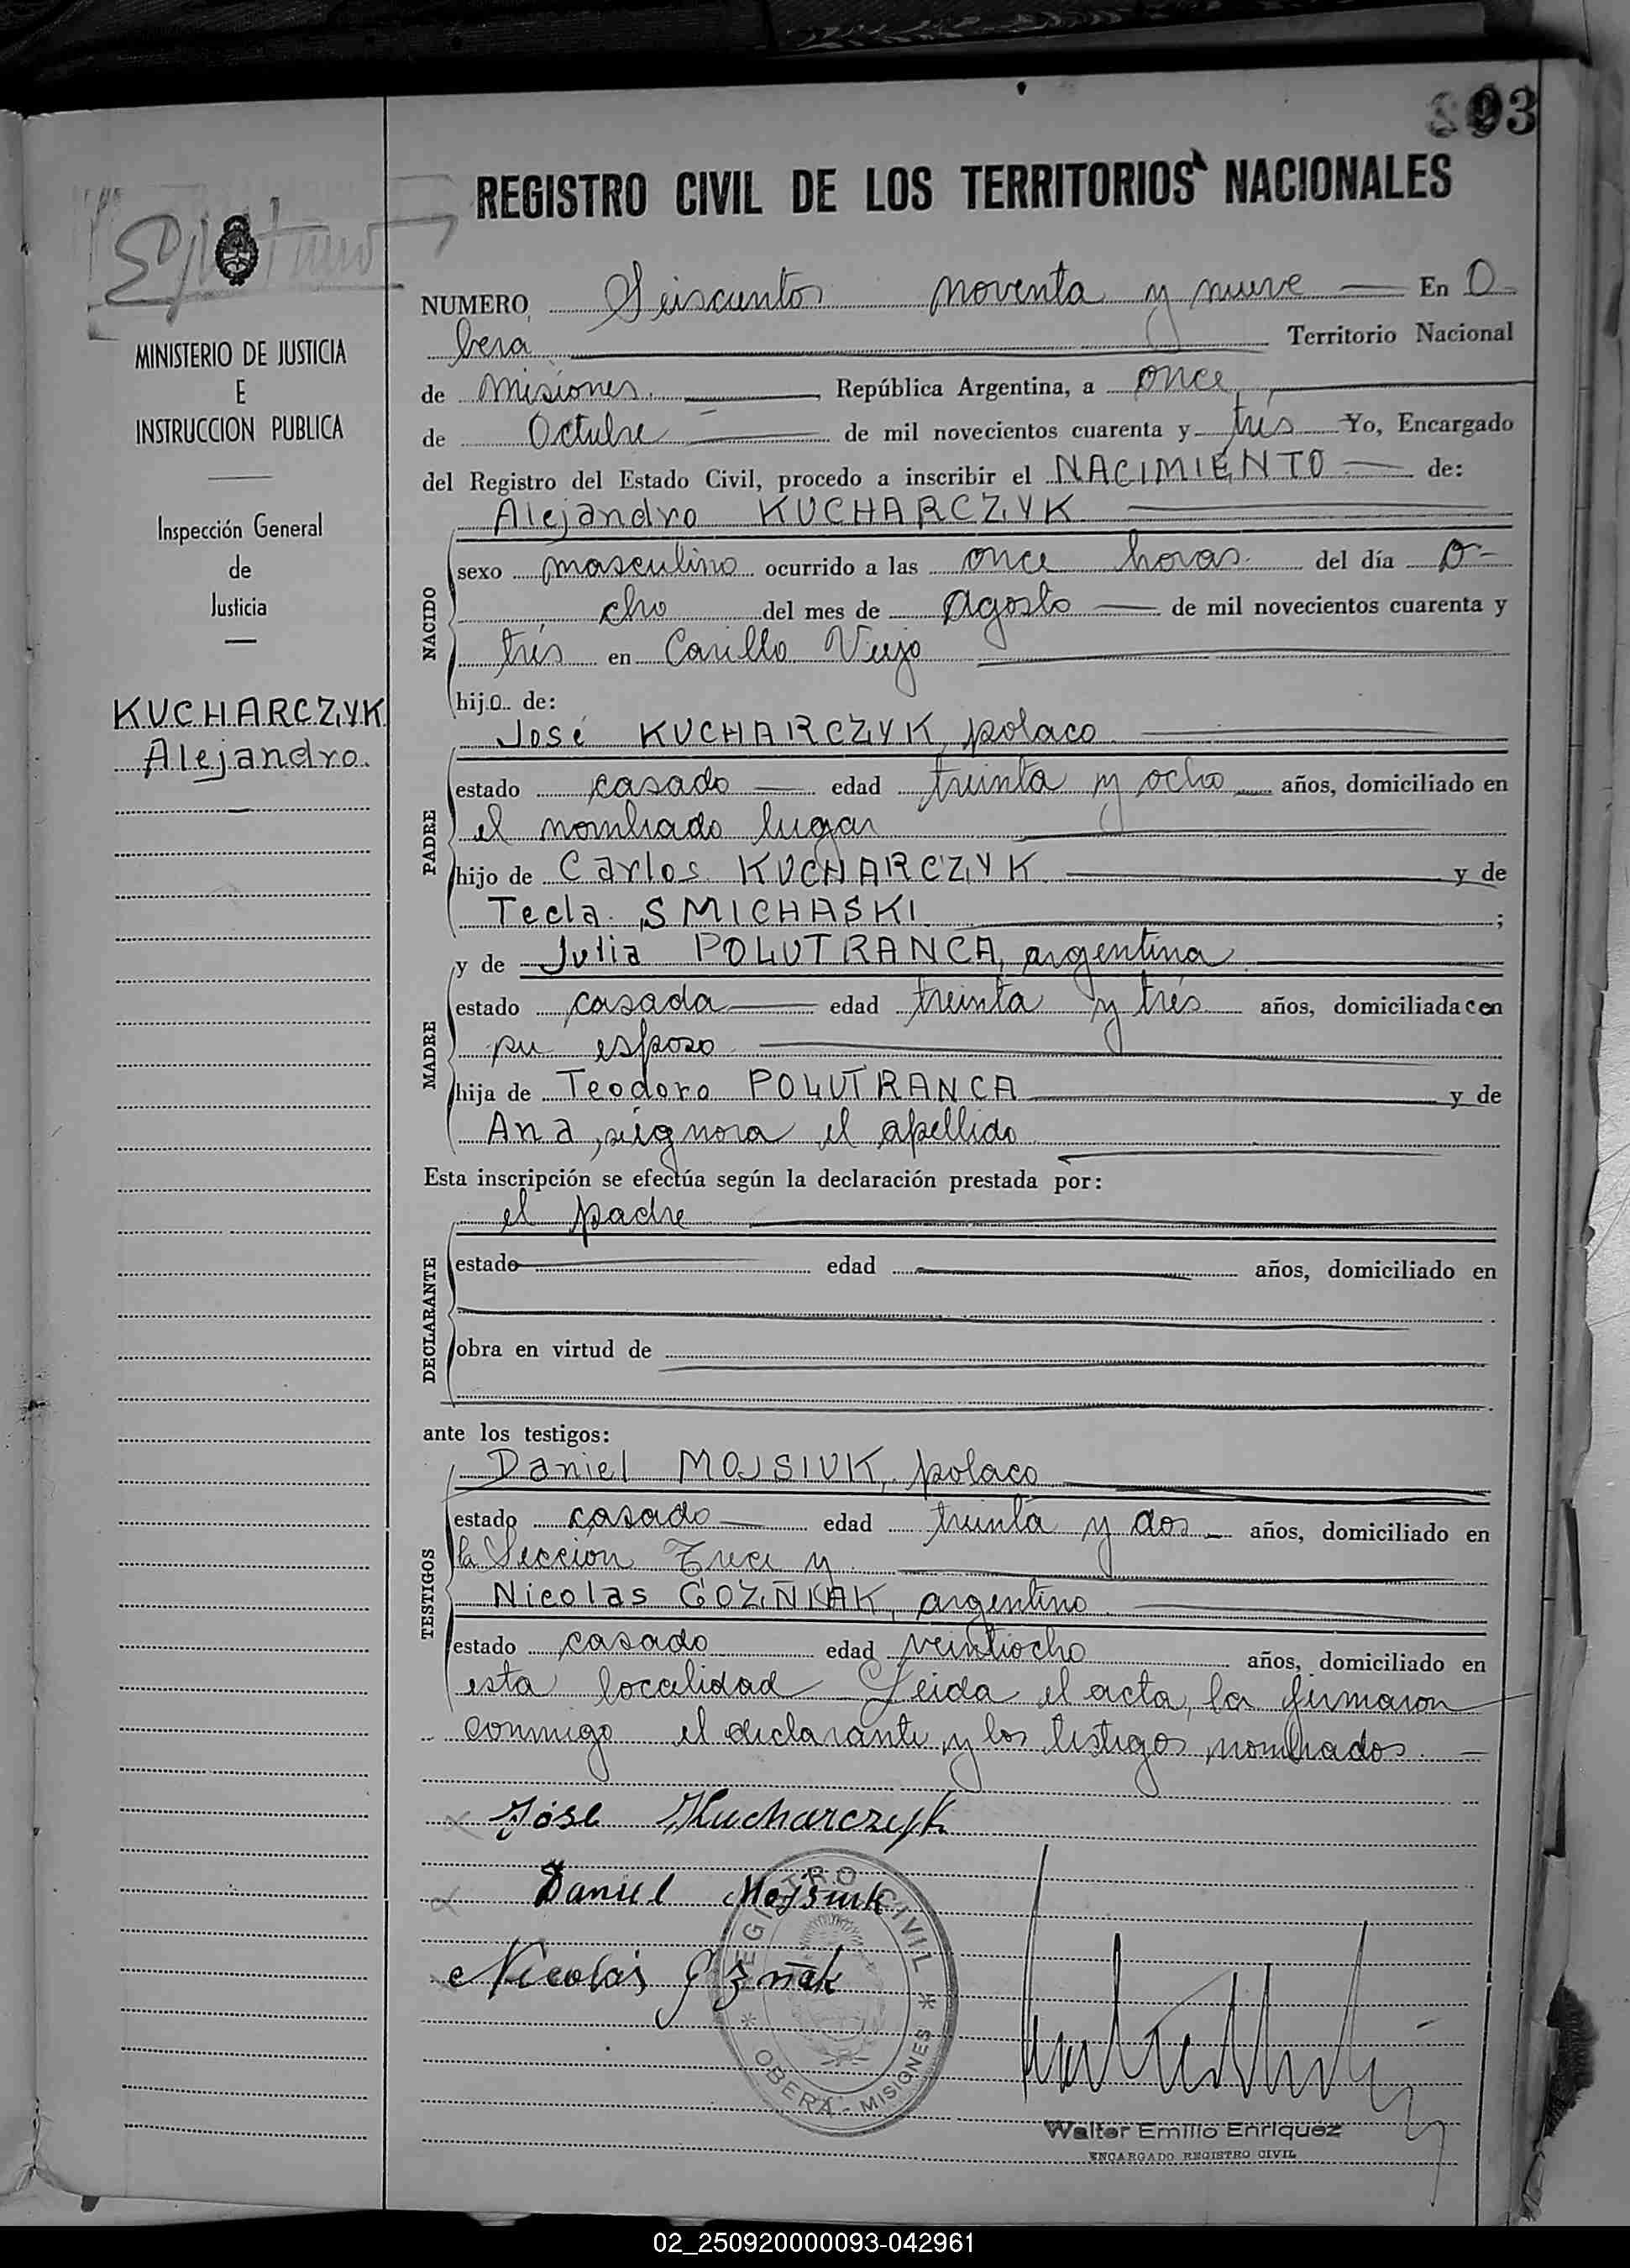 93
REGISTRO CIVIL DE LOS TERRITORIOS NACIONALES
MINISTERIO DE JUSTICIA
E
INSTRUCCION PUBLICA
Inspección General
de
Justicia
KUCHARCZYK
Alejandro.
NUMERO Seiscientos noventa y nueve En O-
bera Territorio Nacional
de Misiones, República Argentina, a once
de Octubre de mil novecientos cuarenta y trés Yo, Encargado
del Registro del Estado Civil, procedo a inscribir el NACIMIENTO de:
Alejandro KUCHARCZYK
NACIDO
sexo masculino ocurrido a las once horas del día O-
cho del mes de Agosto de mil novecientos cuarenta y
trés en Carillo Viejo
hijo de:
José KUCHARCZYK, polaco
PADRE
estado casado edad treinta y ocho años, domiciliado en
el nombrado lugar
hijo de Carlos KUCHARCZYK y de
Tecla SMICHASKI ;
y de Julia POLUTRANCA, argentina
MADRE
estado casada edad treinta y trés años, domiciliada con
su esposo
hija de Teodoro POLUTRANCA y de
Ana, se ignora el apellido
Esta inscripción se efectúa según la declaración prestada por:
el padre
DECLARANTE
estado edad años, domiciliado en
obra en virtud de
ante los testigos:
Daniel MOJSIUK, polaco
TESTIGOS
estado casado edad treinta y dos años, domiciliado en
la Seccion Trece y
Nicolas GOZÑIAK, argentino
estado casado edad veintiocho años, domiciliado en
esta localidad Leida el acta, la firmaron
conmigo el declarante y los testigos nombrados.
José Kucharczyk
Daniel Mojsiuk
Nicolás
REGISTRO CIVIL
OBERÁ - MISIONES
Walter Emilio Enriquez
ENCARGADO REGISTRO CIVIL
02_250920000093-042961